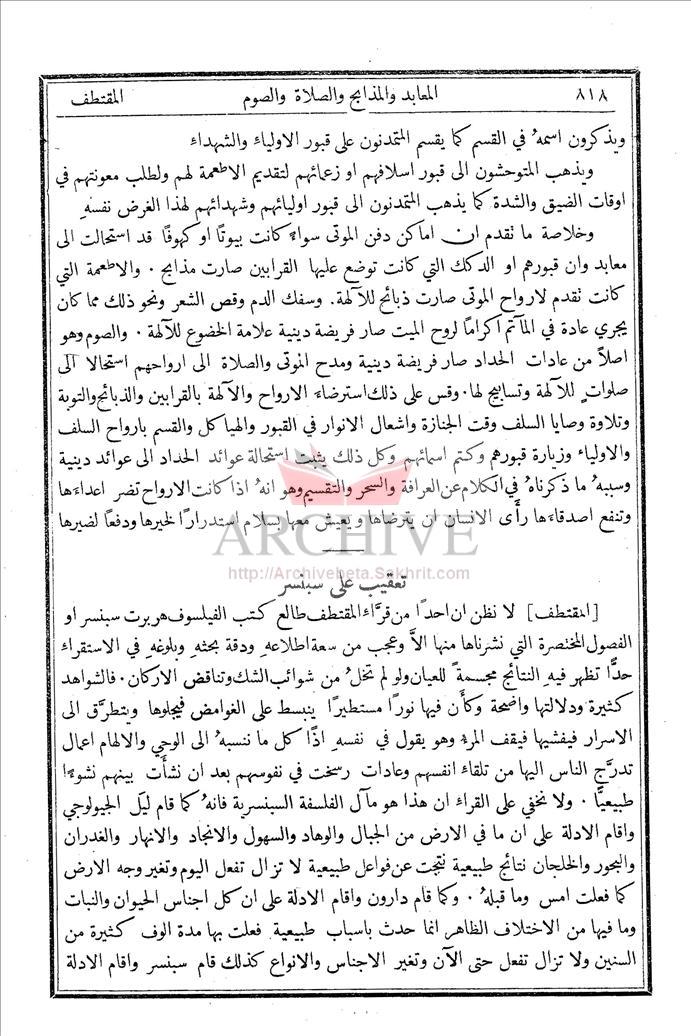 ٨١٨ المعابد والمذابح والصلاة والصوم المقتطف
ويذكرون اسمهُ في القسم كما يقسم المتمدنون على قبور الاولياء والشهداء
ويذهب المتوحشون الى قبور اسلافهم او زعمائهم لتقديم الاطعمة لهم ولطلب معونتهم في
اوقات الضيق والشدة كما يذهب المتمدنون الى قبور اوليائهم وشهدائهم لهذا الغرض نفسهِ
وخلاصة ما تقدم ان اماكن دفن الموتى سواءٌ كانت بيوتًا او كهوفًا قد استحالت الى
معابد وان قبورهم او الدكك التي كانت توضع عليها القرابين صارت مذابح ٠ والاطعمة التي
كانت تقدم لارواح الموتى صارت ذبائح للآلهة. وسفك الدم وقص الشعر ونحو ذلك مما كان
يجري عادة في المآتم اكرامًا لروح الميت صار فريضة دينية علامة الخضوع للآلهة ٠ والصوم وهو
اصلاً من عادات الحداد صار فريضة دينية ومدح الموتى والصلاة الى ارواحهم استحالا الى
صلواتٍ للآلهة وتسابيح لها. وقس على ذلك استرضاءَ الارواح والآلهة بالقرابين والذبائح والتوبة
وتلاوة وصايا السلف وقت الجنازة واشعال الانوار في القبور والهياكل والقسم بارواح السلف
والاولياء وزيارة قبورهم وكتم اسمائهم وكل ذلك يثبت استحالة عوائد الحداد الى عوائد دينية
وسببهُ ما ذكرناهُ في الكلام عن العرافة والسحر والتقسيم وهو انهُ اذا كانت الارواح تضر اعداءَها
وتنفع اصدقاءَها رأَى الانسان ان يترضاها ويعيش معها بسلام استدرارًا لخيرها ودفعًا لضيرها
ARCHIVE
http://Archivebeta.Sakhrit.com
تعقيب على سبنسر
[المقتطف] لا نظن ان احدًا من قرَّاء المقتطف طالع كتب الفيلسوف هربرت سبنسر او
الفصول المختصرة التي نشرناها منها الاَّ وعجب من سعة اطلاعهِ ودقة بحثهِ وبلوغهِ في الاستقراء
حدًّا تظهر فيهِ النتائج مجسمةً للعيان ولو لم تخلُ من شوائب الشك وتناقض الاركان. فالشواهد
كثيرة ودلالتها واضحة وكأَن فيها نورًا مستطيرًا ينبسط على الغوامض فيجلوها ويتطرَّق الى
الاسرار فيفشيها فيقف المرءُ وهو يقول في نفسهِ اذًا كل ما ننسبهُ الى الوحي والالهام اعمال
تدرَّج الناس اليها من تلقاء انفسهم وعادات رسخت في نفوسهم بعد ان نشأَت بينهم نشوءًا
طبيعيًّا ٠ ولا نخفي على القراء ان هذا هو مآل الفلسفة السبنسرية فانهُ كما قام ليَل الجيولوجي
واقام الادلة على ان ما في الارض من الجبال والوهاد والسهول والانجاد والانهار والغدران
والبحور والخلجان نتائج طبيعية نتجت عن فواعل طبيعية لا تزال تفعل اليوم وتغير وجه الارض
كما فعلت امس وما قبلهُ ٠ وكما قام دارون واقام الادلة على ان كل اجناس الحيوان والنبات
وما فيها من الاختلاف الظاهر انما حدث باسباب طبيعية فعلت بها مدة الوف كثيرة من
السنين ولا تزال تفعل حتى الآن وتغير الاجناس والانواع كذلك قام سبنسر واقام الادلة